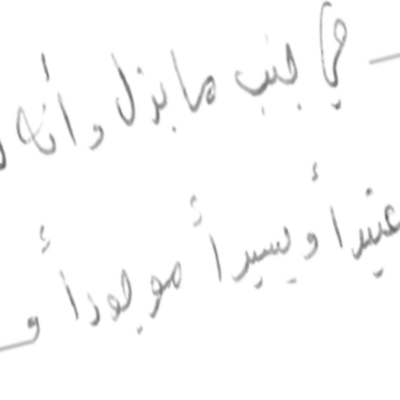 في جنب ما بذل وأنه
عتيداً ويسيراً موجوداً و